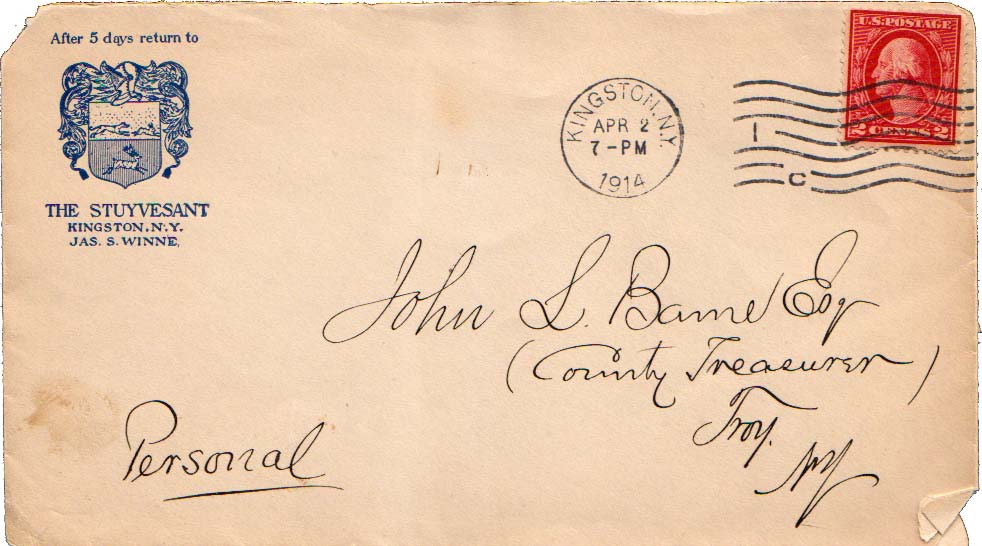 After 5 days return to
THE STUYVESANT
KINGSTON, N.Y.
JAS. S. WINNE,
KINGSTON, N.Y.
APR 2
7-PM
1914
1
C
U.S. POSTAGE
2 CENTS 2
John L. Barne Esq
(County Treasurer)
Troy.
NY
Personal